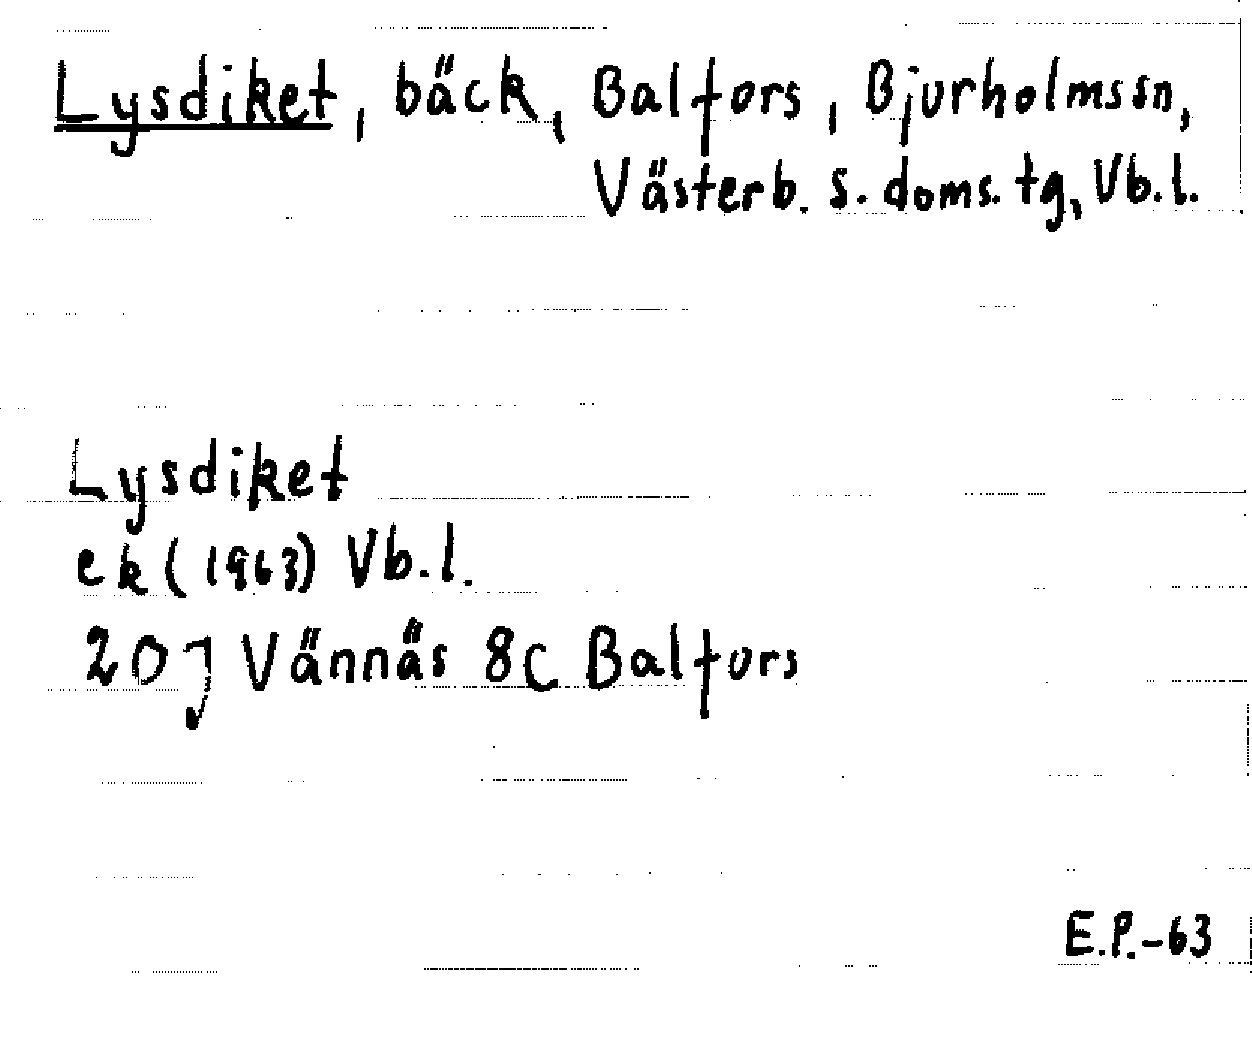 Lysdiket, bäck, Balfors, Bjurholmssn,
Västerb. s. doms. tg, Vb. l.
Lysdiket
ek (1963) Vb. l.
20J Vännäs 8c Balfors
E.P.-63